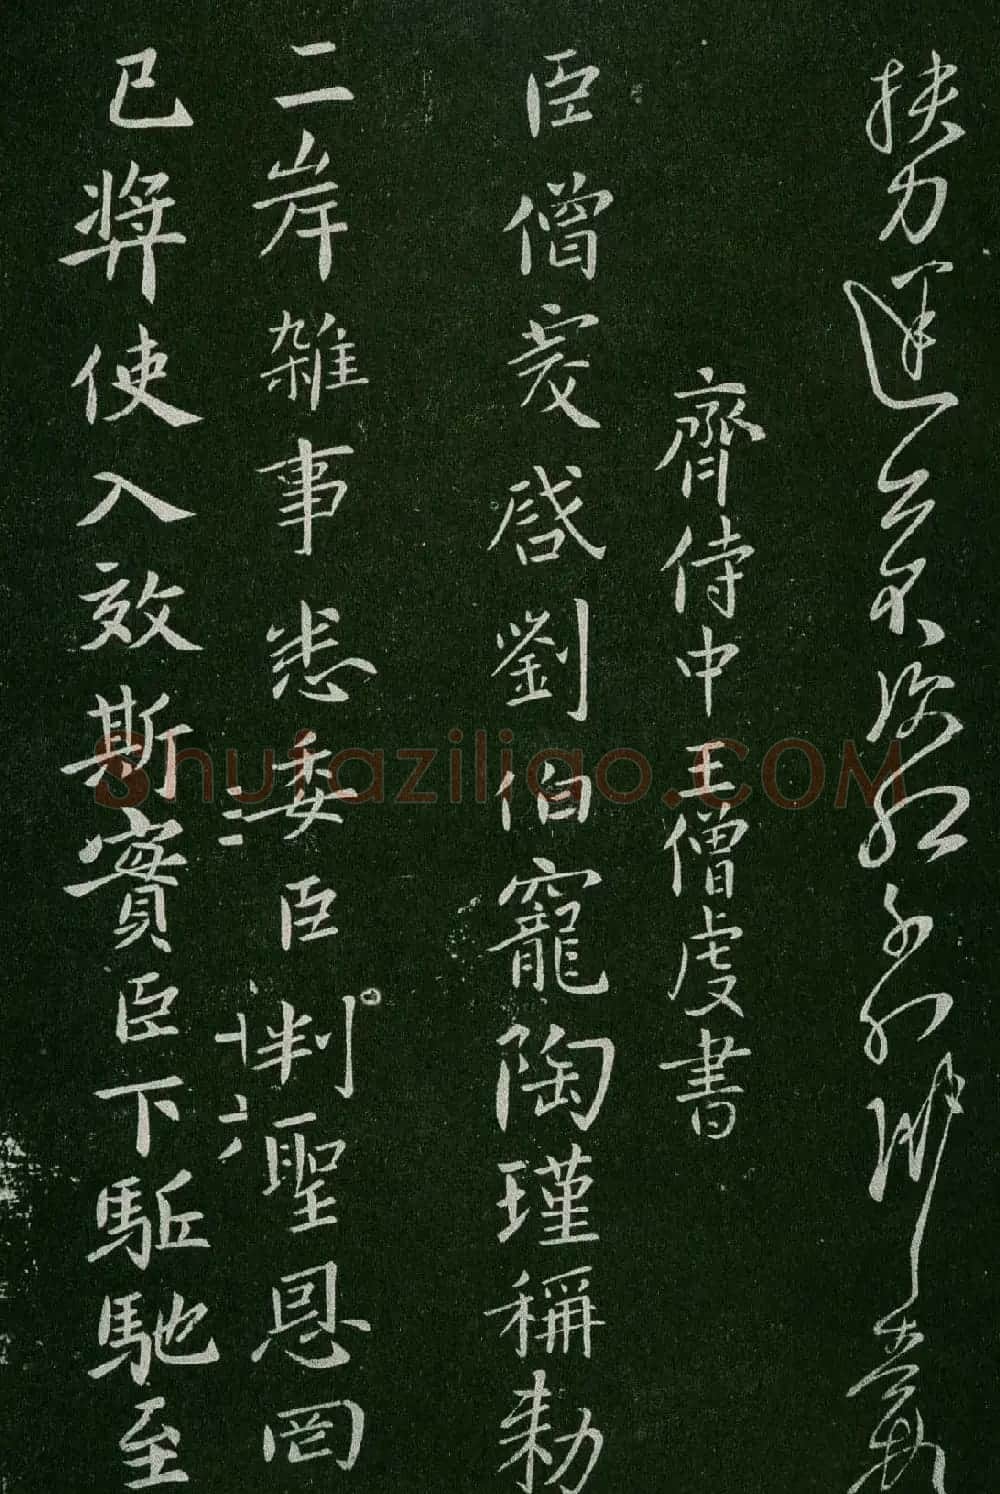 扶力
齊侍中王僧虔書
臣僧虔啓劉伯寵陶瑾稱勑
二岸雜事悉委臣判聖恩罔
已奬使入效斯實臣下駈馳至
Shufaziliao.COM